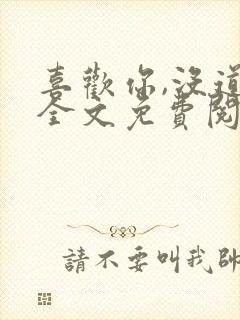 喜歡你,沒道
全文免費閱
請不要叫我帥